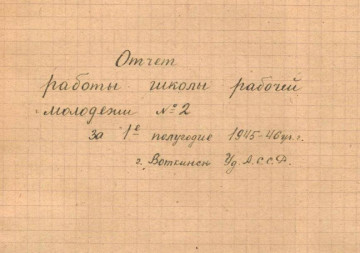 Отчет
работы школы рабочей
молодежи № 2
за 1е полугодие 1945-46 уч. г.
г. Воткинск Уд. А.С.С.Р.